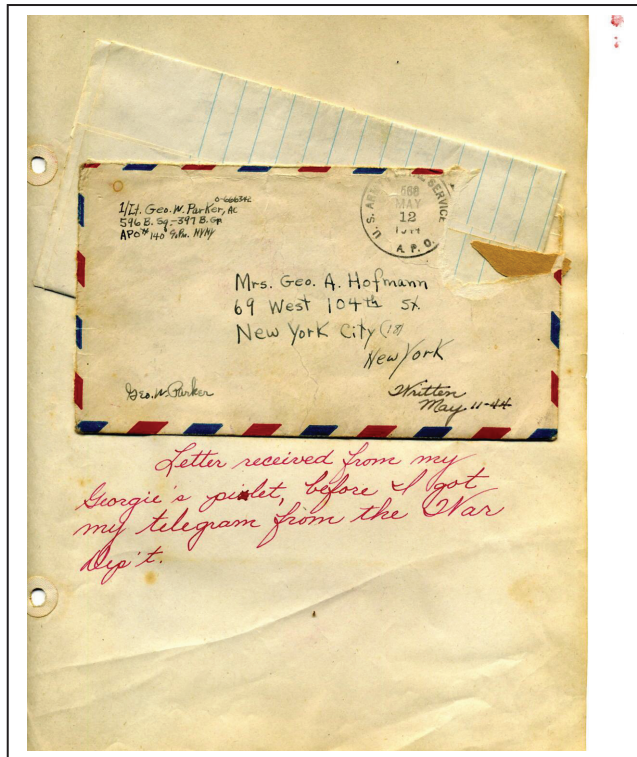 1/Lt. Geo. W. Parker, AC
596 B. Sq.-397 B. Gp.
APO# 140 % P.M. NYNY
U. S. AR SERVICE
MAY
12
A. P. O.
Mrs. Geo. A. Hofmann
69 West 104th St.
New York City (18)
New York
Geo. W. Parker
Written
May 11-44
Letter received from my
Georgie's pilet, before I got
my telegram from the War
Dep't.